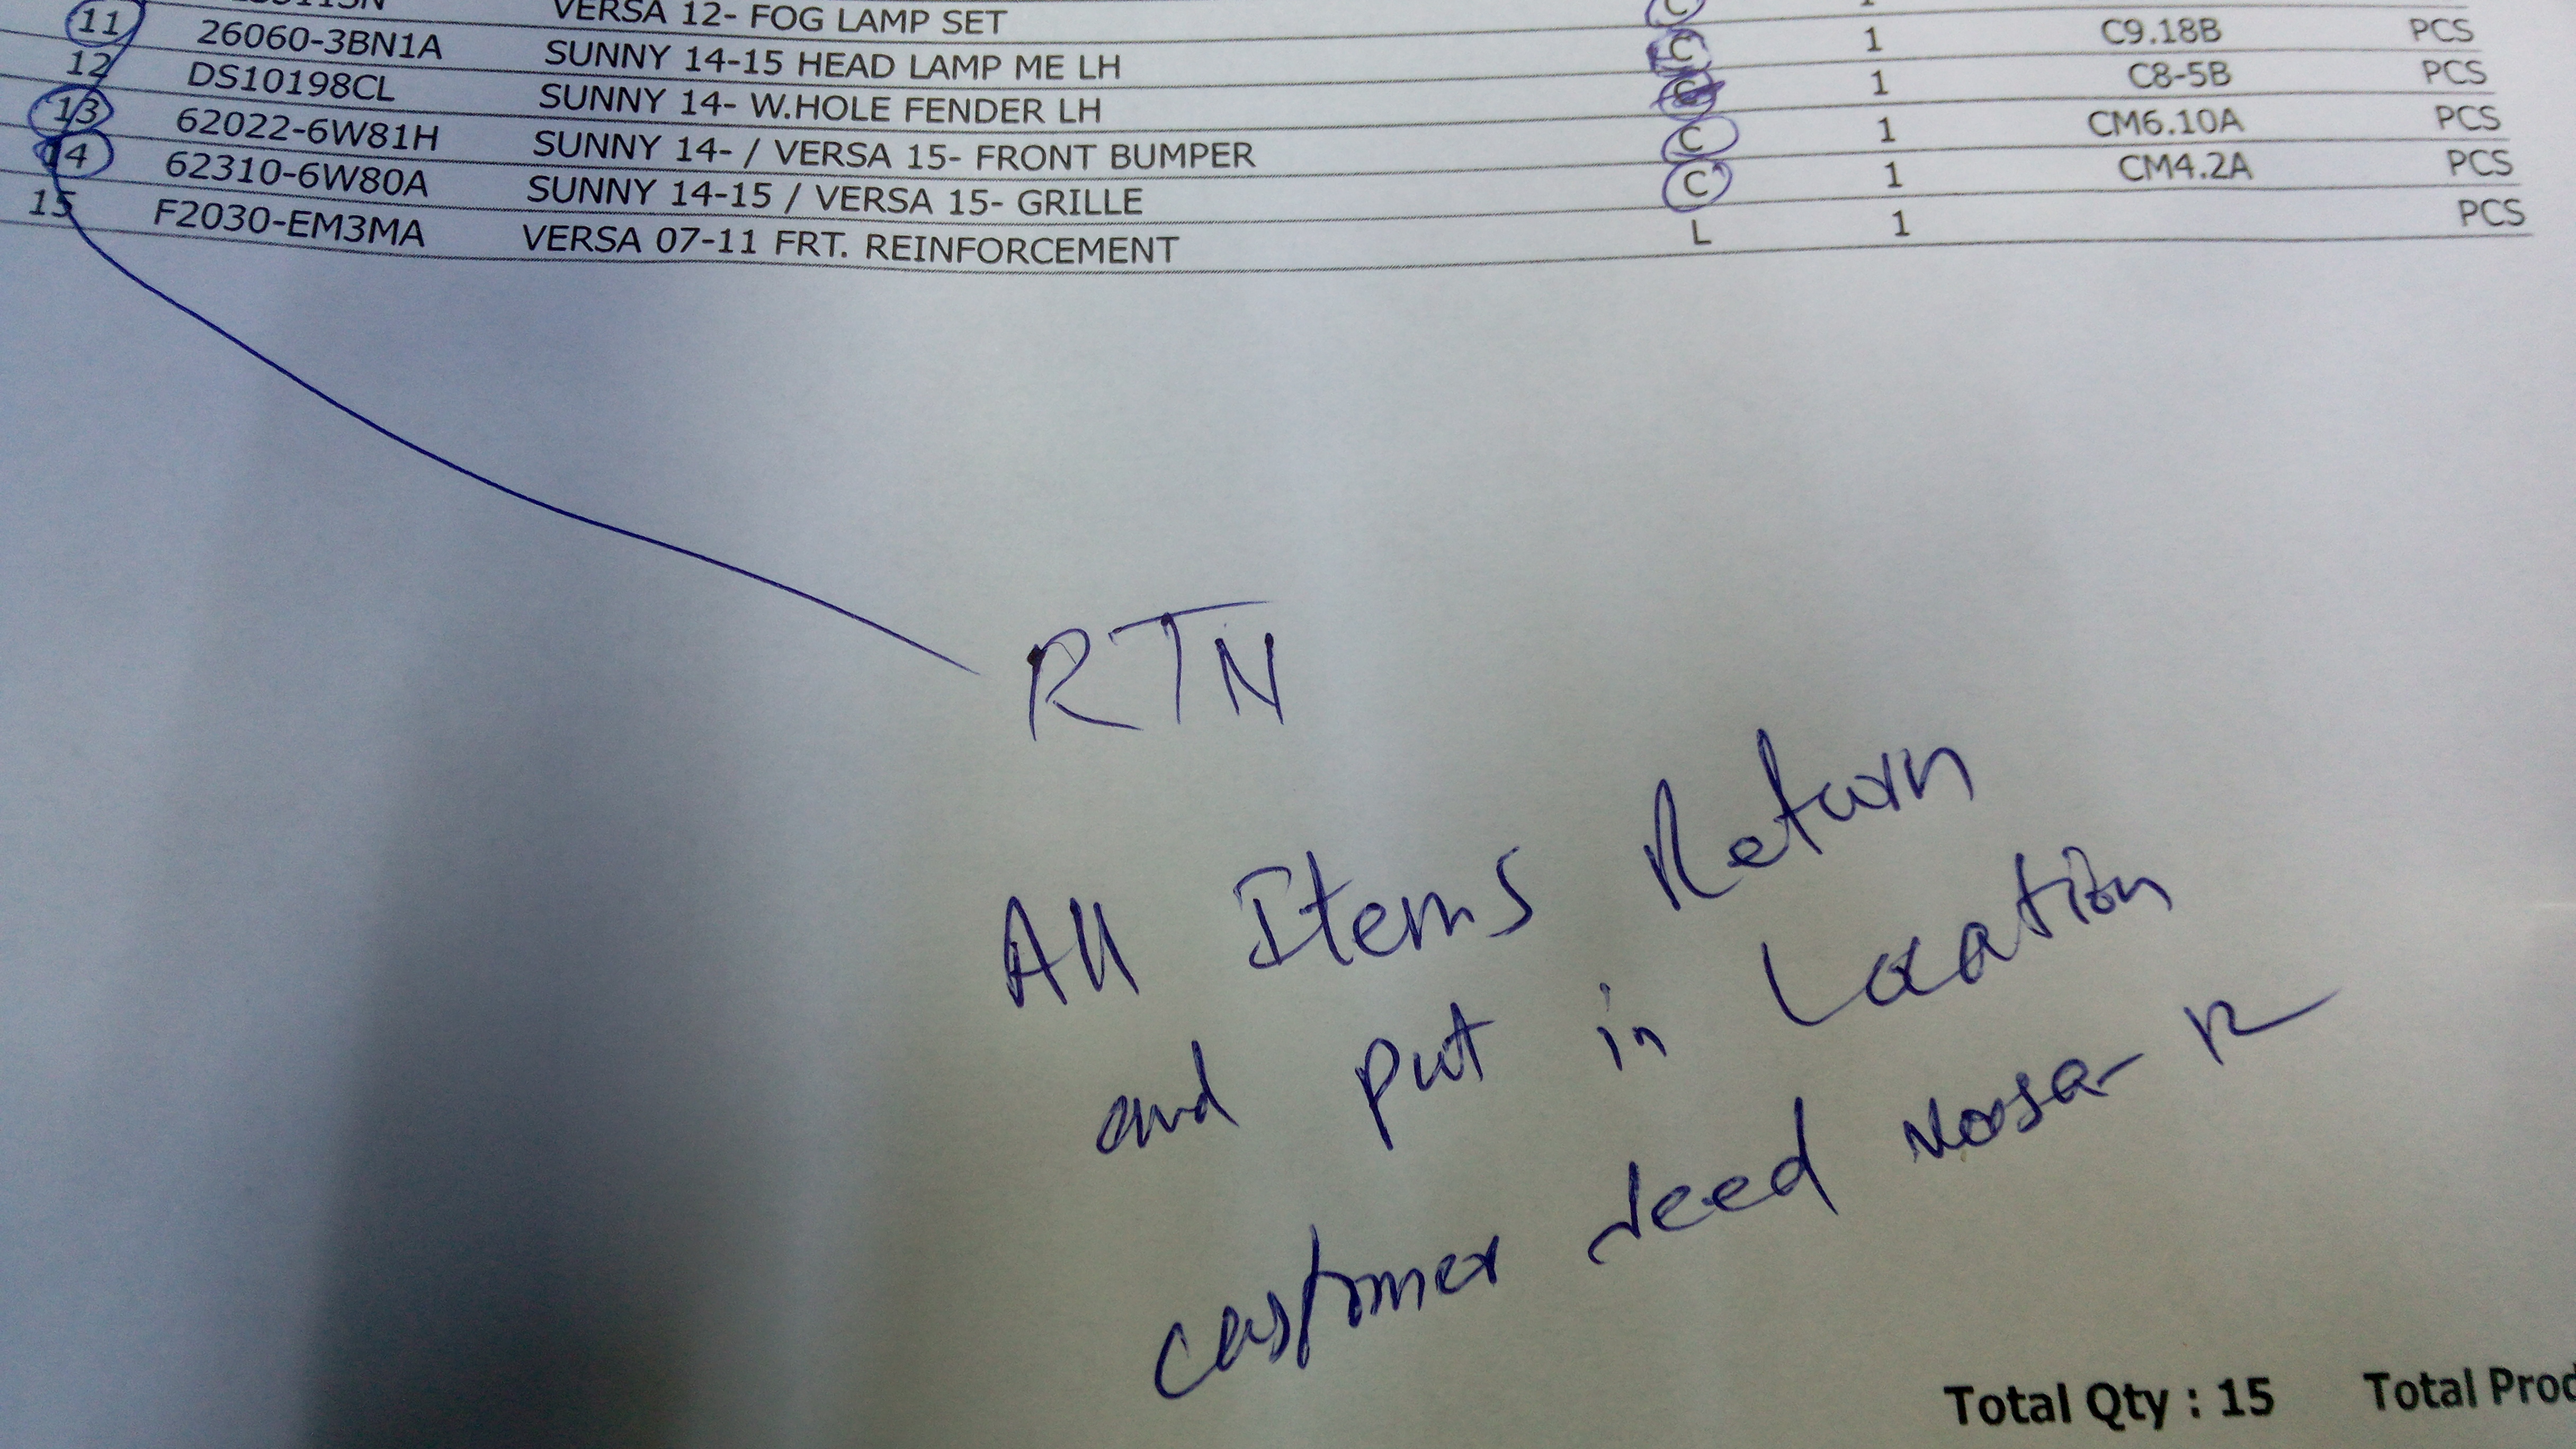 VERSA 12- FOG LAMP SET C 1
11 26060-3BN1A SUNNY 14-15 HEAD LAMP ME LH C 1 C9.18B PCS
12 DS10198CL SUNNY 14- W.HOLE FENDER LH C 1 C8-5B PCS
13 62022-6W81H SUNNY 14- / VERSA 15- FRONT BUMPER C 1 CM6.10A PCS
14 62310-6W80A SUNNY 14-15 / VERSA 15- GRILLE C 1 CM4.2A PCS
15 F2030-EM3MA VERSA 07-11 FRT. REINFORCEMENT L 1 PCS
RTN
All Items Return
and put in Location
customer need
Total Qty : 15 Total Prod